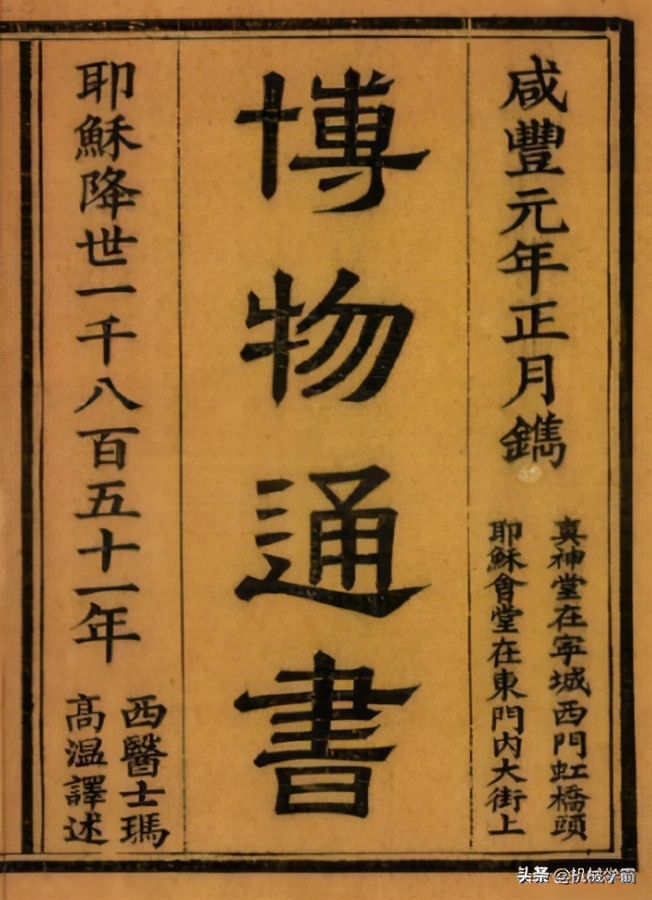 咸豐元年正月鐫
真神堂在寜城西門虹橋頭
耶穌會堂在東門內大街上
博物通書
耶穌降世一千八百五十一年
西醫士瑪
高温譯述
头条 @机械学霸